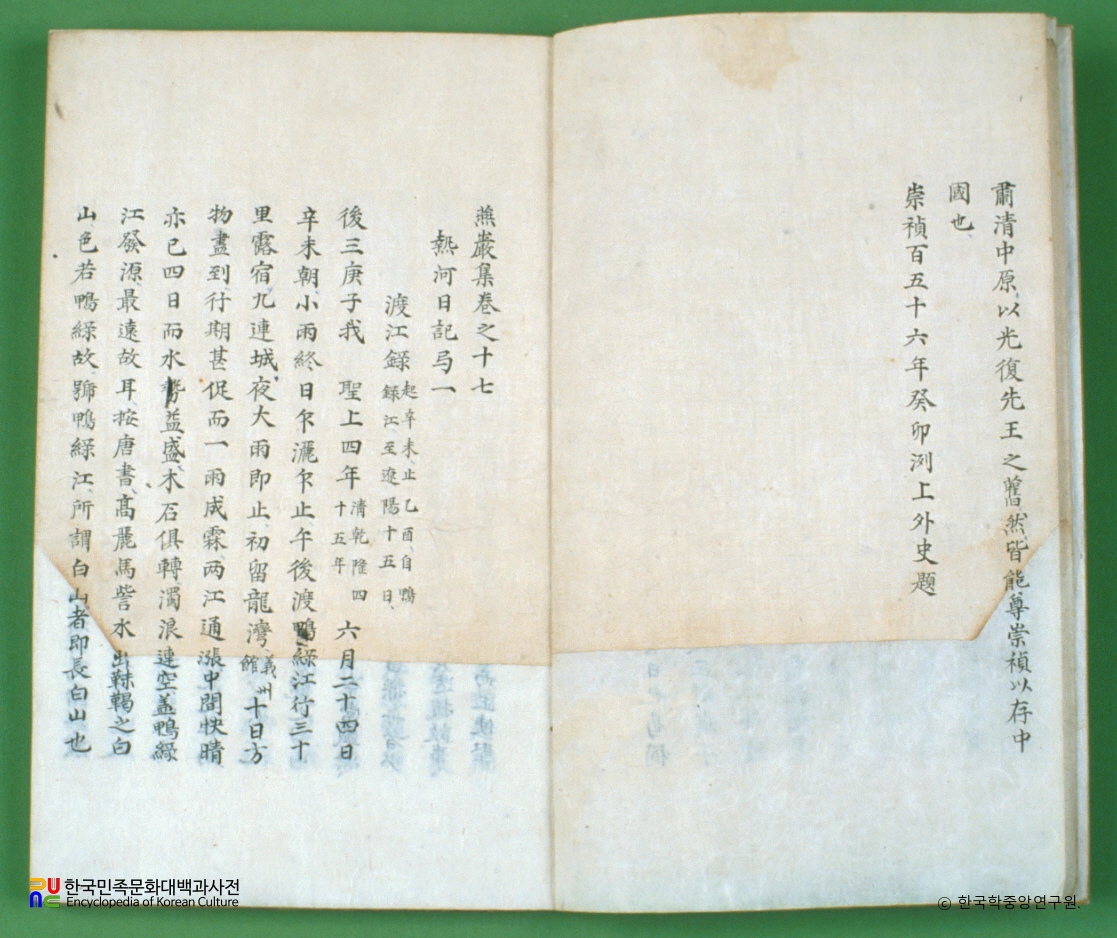 肅清中原以光復先王之舊然皆能尊崇禎以存中
國也
崇禎百五十六年癸卯洌上外史題
燕巖集卷之十七
熱河日記 弓一
渡江錄 起辛未止乙酉自鴨
綠江至遼陽十五日
後三庚子我 聖上四年 清乾隆四
十五年 六月二十四日
辛未朝小雨終日乍灑乍止午後渡鴨綠江行三十
里露宿九連城夜大雨即止初留龍灣 義州
館 十日方
物盡到行期甚促而一雨成霖兩江通漲中間快晴
亦已四日而水勢益盛木石俱轉濁浪連空盖鴨綠
江發源最遠故耳按唐書高麗馬訾水出靺鞨之白
山色若鴨綠故號鴨綠江所謂白山者即長白山也
한국민족문화대백과사전
Encyclopedia of Korean Culture
© 한국학중앙연구원.